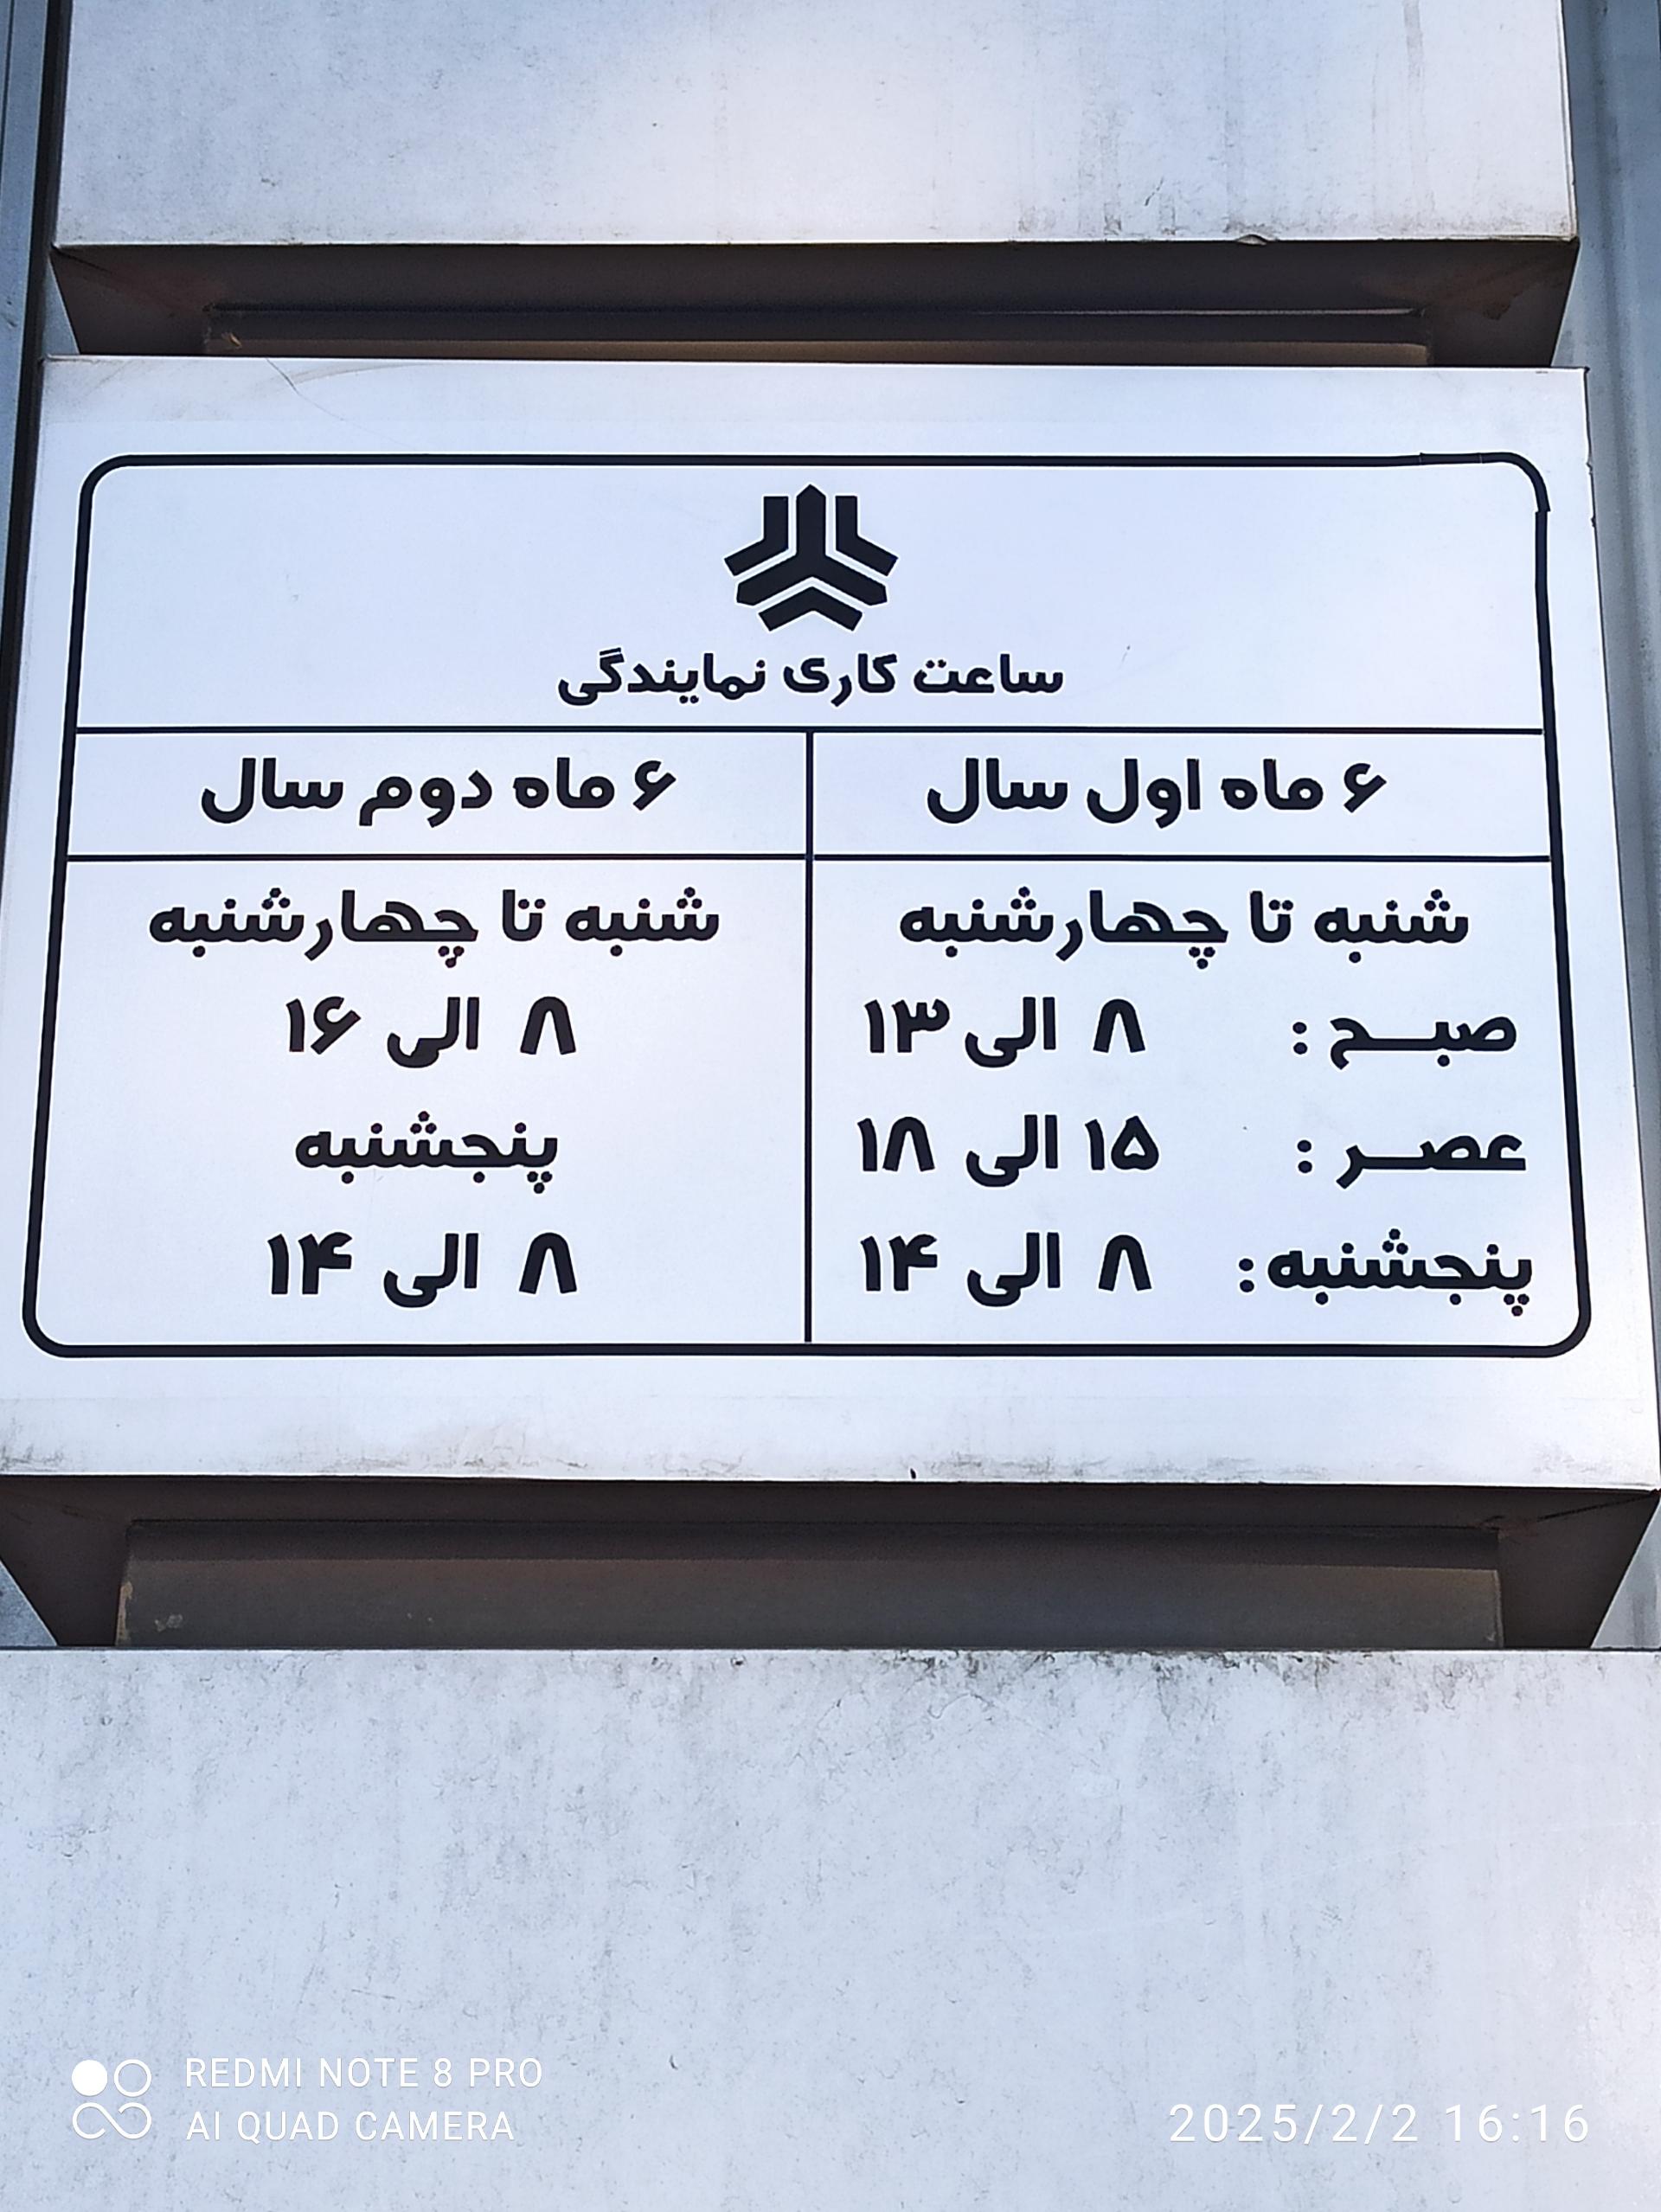 ساعت کاری نمایندگی
۶ ماه اول سال
شنبه تا چهارشنبه
صبح : ۸ الی ۱۳
عصر : ۱۵ الی ۱۸
پنجشنبه: ۸ الی ۱۴
۶ ماه دوم سال
شنبه تا چهارشنبه
۸ الی ۱۶
پنجشنبه
۸ الی ۱۴
REDMI NOTE 8 PRO
AI QUAD CAMERA
2025/2/2 16:16